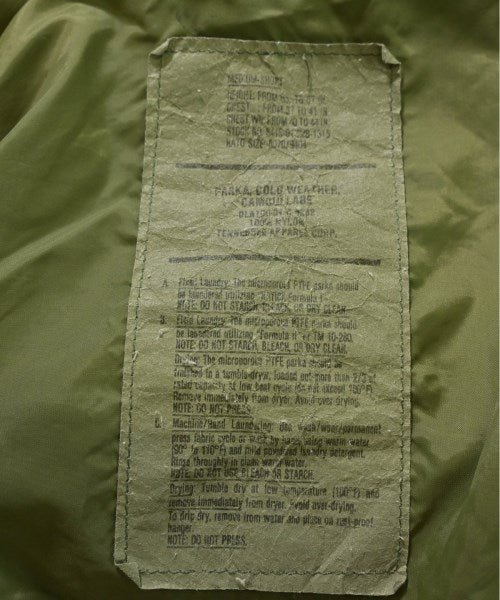 MEDIUM-SHORT
HEIGHT: FROM TO IN
CHEST: FROM 37 TO 41 IN
STOCK NO. 8415-01-228-1315
NATO SIZE
PARKA, COLD WEATHER,
CAMOUFLAGE
100% NYLON
TENNESSEE APPAREL CORP.
A. Field Laundry: The microporous PTFE parka should
be laundered utilizing Formula I
NOTE: DO NOT STARCH, BLEACH, OR DRY CLEAN.
Field Laundry: The microporous PTFE parka should
be laundered utilizing "Formula II" TM 10-280.
NOTE: DO NOT STARCH, BLEACH, OR DRY CLEAN.
Drying: The microporous PTFE parka should be
finished to a tumble-dryer, loaded not more than 2/3 of
rated capacity at low heat cycle (do not exceed
Remove immediately from dryer. Avoid over-drying.
NOTE: DO NOT PRESS.
Machine/Hand Laundering: Use wash/wear/permanent
press fabric cycle or wash by hand using warm water
(90° to 110°F) and mild powdered laundry detergent.
Rinse thoroughly in clean warm water.
NOTE: DO NOT USE BLEACH OR STARCH.
Drying: Tumble dry at low temperature and
remove immediately from dryer. Avoid over-drying.
To drip dry, remove from water and place on rust-proof
hanger.
NOTE: DO NOT PRESS.